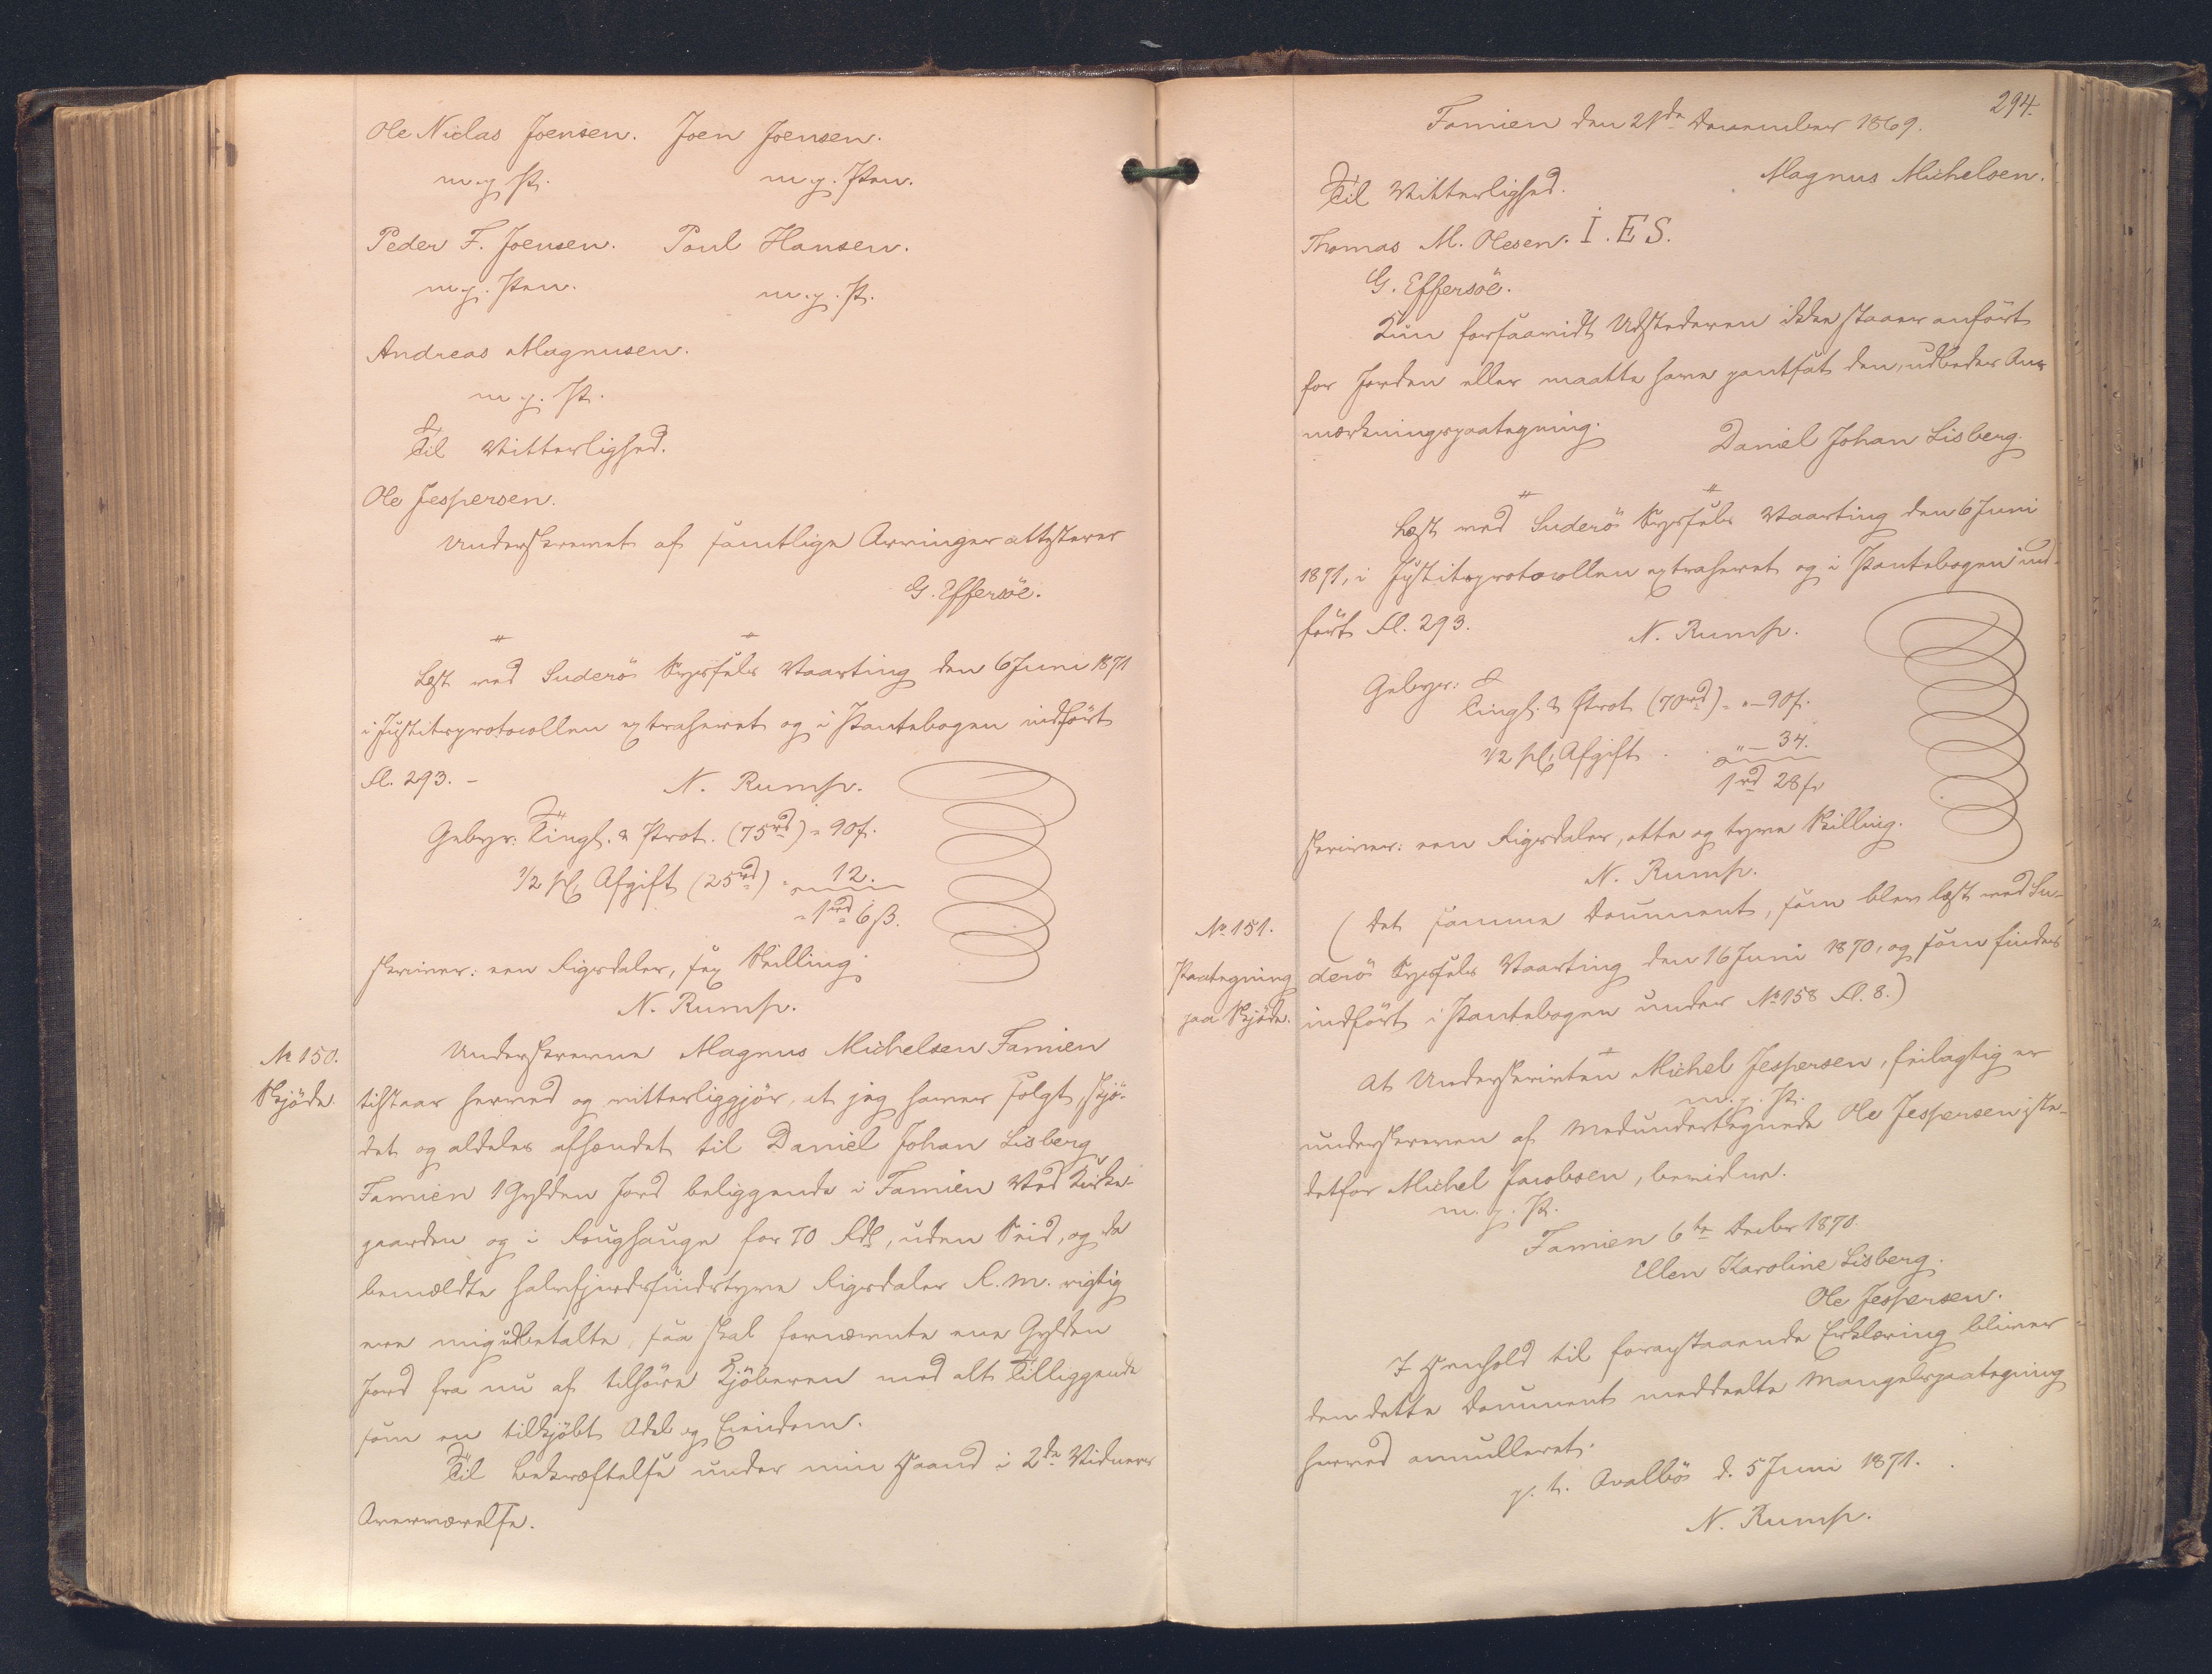 Ole Niclas Joensen. Joen Joensen.
m. p. P. m. p. Pen.
Peder F. Joensen. Poul Hansen.
m. p. Pen. m. p. P.
Andreas Magnusen.
m. p. P.
Til Vitterlighed.
Ole Jespersen.
Underskrevet af samtlige Arvinger attesterer
G. Effersöe.
Læst ved Suderö Syssels Vaarting den 6 Juni 1871
i Justitsprotocollen extraheret og i Pantebogen indført
Fl. 293. –
N. Rump.
Gebyr: Tingl. & Prot. (75 rd) = 90 s.
1/2 pCt Afgift (25 rd) " 12.
= 1 rd 6 ß.
skriver: een Rigsdaler, sex Skilling.
N. Rump.
No 150.
Skjöde.
Underskrevne Magnus Michelsen Famien
tilstaar herved og vitterliggjør, at jeg haver solgt, skjö-
det og aldeles afhændet til Daniel Johan Lisberg
Famien 1 Gylden Jord beliggende i Famien Ved Kirke-
gaarden og i Roughauge for 70 Rdl, uden Seid, og da
bemældte halvfjerdsindstyve Rigsdaler R. M. rigtig
ere mig udbetalte, saa skal fornævnte ene Gylden
Jord fra nu af tilhøre Kjöberen med alt Tilliggende
som en tilkjöbt Odel og Eiendom.
Til Bekræftelse under min Haand i 2de Vidners
Overværelse.
294.
Famien den 21de December 1869.
Magnus Michelsen.
Til Vitterlighed.
Thomas M. Olesen. I. E S.
G. Effersöe.
Kun forsaavidt Udstederen ikke staaer anført
for Jorden eller maatte have pantsat den, udbedes An-
mærkningspaategning.
Daniel Johan Lisberg.
Læst ved Suderö Syssels Vaarting den 6 Juni
1871, i Justitsprotocollen extraheret og i Pantebogen ind-
ført Fl. 293.
N. Rump.
Gebyr:
Tingl. & Prot. (70 rd) = "– 90 s.
1/2 pCt. Afgift . . "– 34.
1 rd 28 s
skriver: een Rigsdaler, otte og tyve Skilling.
N. Rump.
No 151.
Paategning
paa Skjöde.
(Det samme Document, som blev læst ved Su-
derö Syssels Vaarting den 16 Juni 1870, og som findes
indført i Pantebogen under No 158 Fl. 8.)
At Underskriften Michel Jespersen, feilagtig er
m. p. P.
underskreven af Medundertegnede Ole Jespersen iste-
detfor Michel Jacobsen, bevidnes.
m. p. P.
Famien 6te Decbr 1870.
Ellen Karoline Lisberg.
Ole Jespersen.
I Henhold til foranstaaende Erklæring bliver
den dette Document meddeelte Mangelspaategning
herved annulleret.
p. t. Qvalbö d. 5 Juni 1871.
N. Rump.